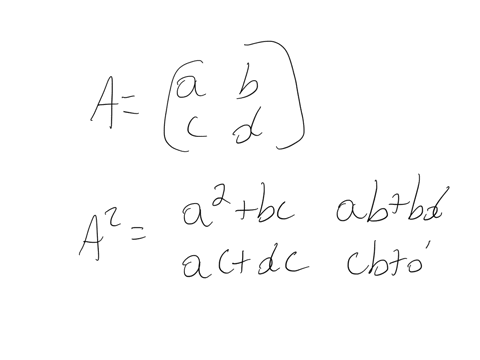 A = (a b
c d)
A² = a²+bc ab+bd
ac+dc cb+